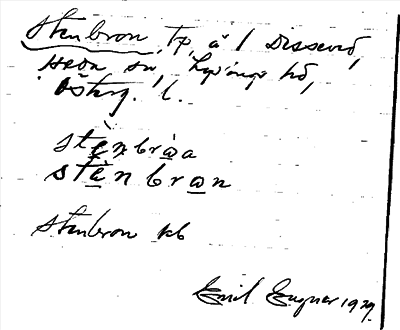 Stenbron, tp, å l Dissevid,
Heda sn, Lysings hd,
Österg. l.
stènbrωa
stènbrωn
Stenbron kb
Emil Eugner 1929.